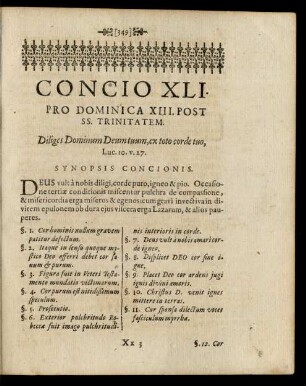 [349]
CONCIO XLI.
PRO DOMINICA XIII. POST
SS. TRINITATEM.
Diliges Dominum Deum tuum, ex toto corde tuo,
Luc. 10. v. 27.
SYNOPSIS CONCIONIS.
DEUS vult à nobis diligi, corde puro, igneo & pio. Occasio-
ne tertiæ conditionis miscentur pulchra de compassione,
& misericordia erga miseros & egenos: cum gravi invectiva in di-
vitem epulonem ob dura ejus viscera erga Lazarum, & alios pau-
peres.
§. 1. Cor hominis nullum gravem
patitur defectum.
§. 2. Itaque in sensu quoque my-
stico Deo offerri debet cor sa-
num & purum.
§. 3. Figura fuit in Veteri Testa-
mento munditia victimarum.
§. 4. Cor purum est nitidissimum
speculum.
§. 5. Prosecutio.
§. 6. Exterior pulchritudo Re-
becca fuit imago pulchritudi-
nis interioris in corde.
§. 7. Deus vult à nobis amari cor-
de igneo.
§. 8. Displicet DEO cor sine i-
gne.
§. 9. Placet Deo cor ardens jugi
ignis divini amoris.
§. 10. Christus D. venit ignem
mittere in terras.
§. 11. Cor sponsæ dilectum vocet
fasciculum myrrhæ.
Xx 3
§. 12. Cor